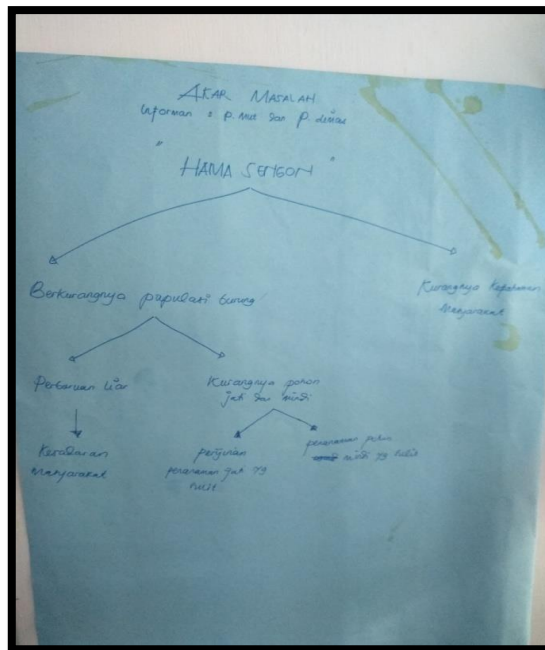 AKAR MASALAH
Informan : P. dan P.
" HAMA SENGON "
Berkurangnya populasi burung
Kurangnya
Masyarakat
Perburuan liar
Kurangnya pohon
jati dan mindi
Kesadaran
Masyarakat
perijinan
penanaman jati yg
penanaman pohon
mindi yg sulit